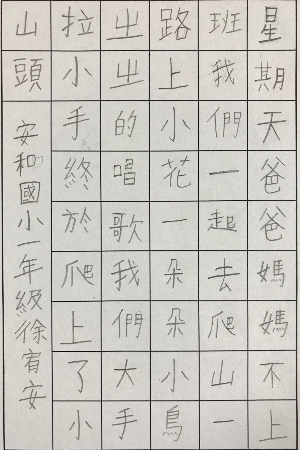 星期天爸爸媽媽不上
班我們一起去爬山一
路上小花一朵朵小鳥
ㄓㄓ的唱歌我們大手
拉小手終於爬上了小
山頭
安和國小一年級徐宥安